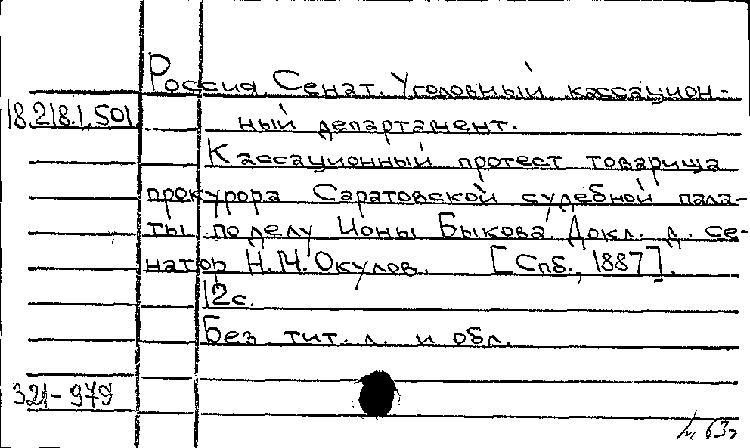 Россия. Сенат. Уголовный кассацион-
18.218.1.501
ный департамент.
Кассационный протест товарища
прокурора Саратовской судебной пала-
ты по делу Ионы Быкова. Докл. д. се-
натор Н.М. Окулов. [Спб., 1887].
12с.
Без тит. л. и обл.
321-979
63г